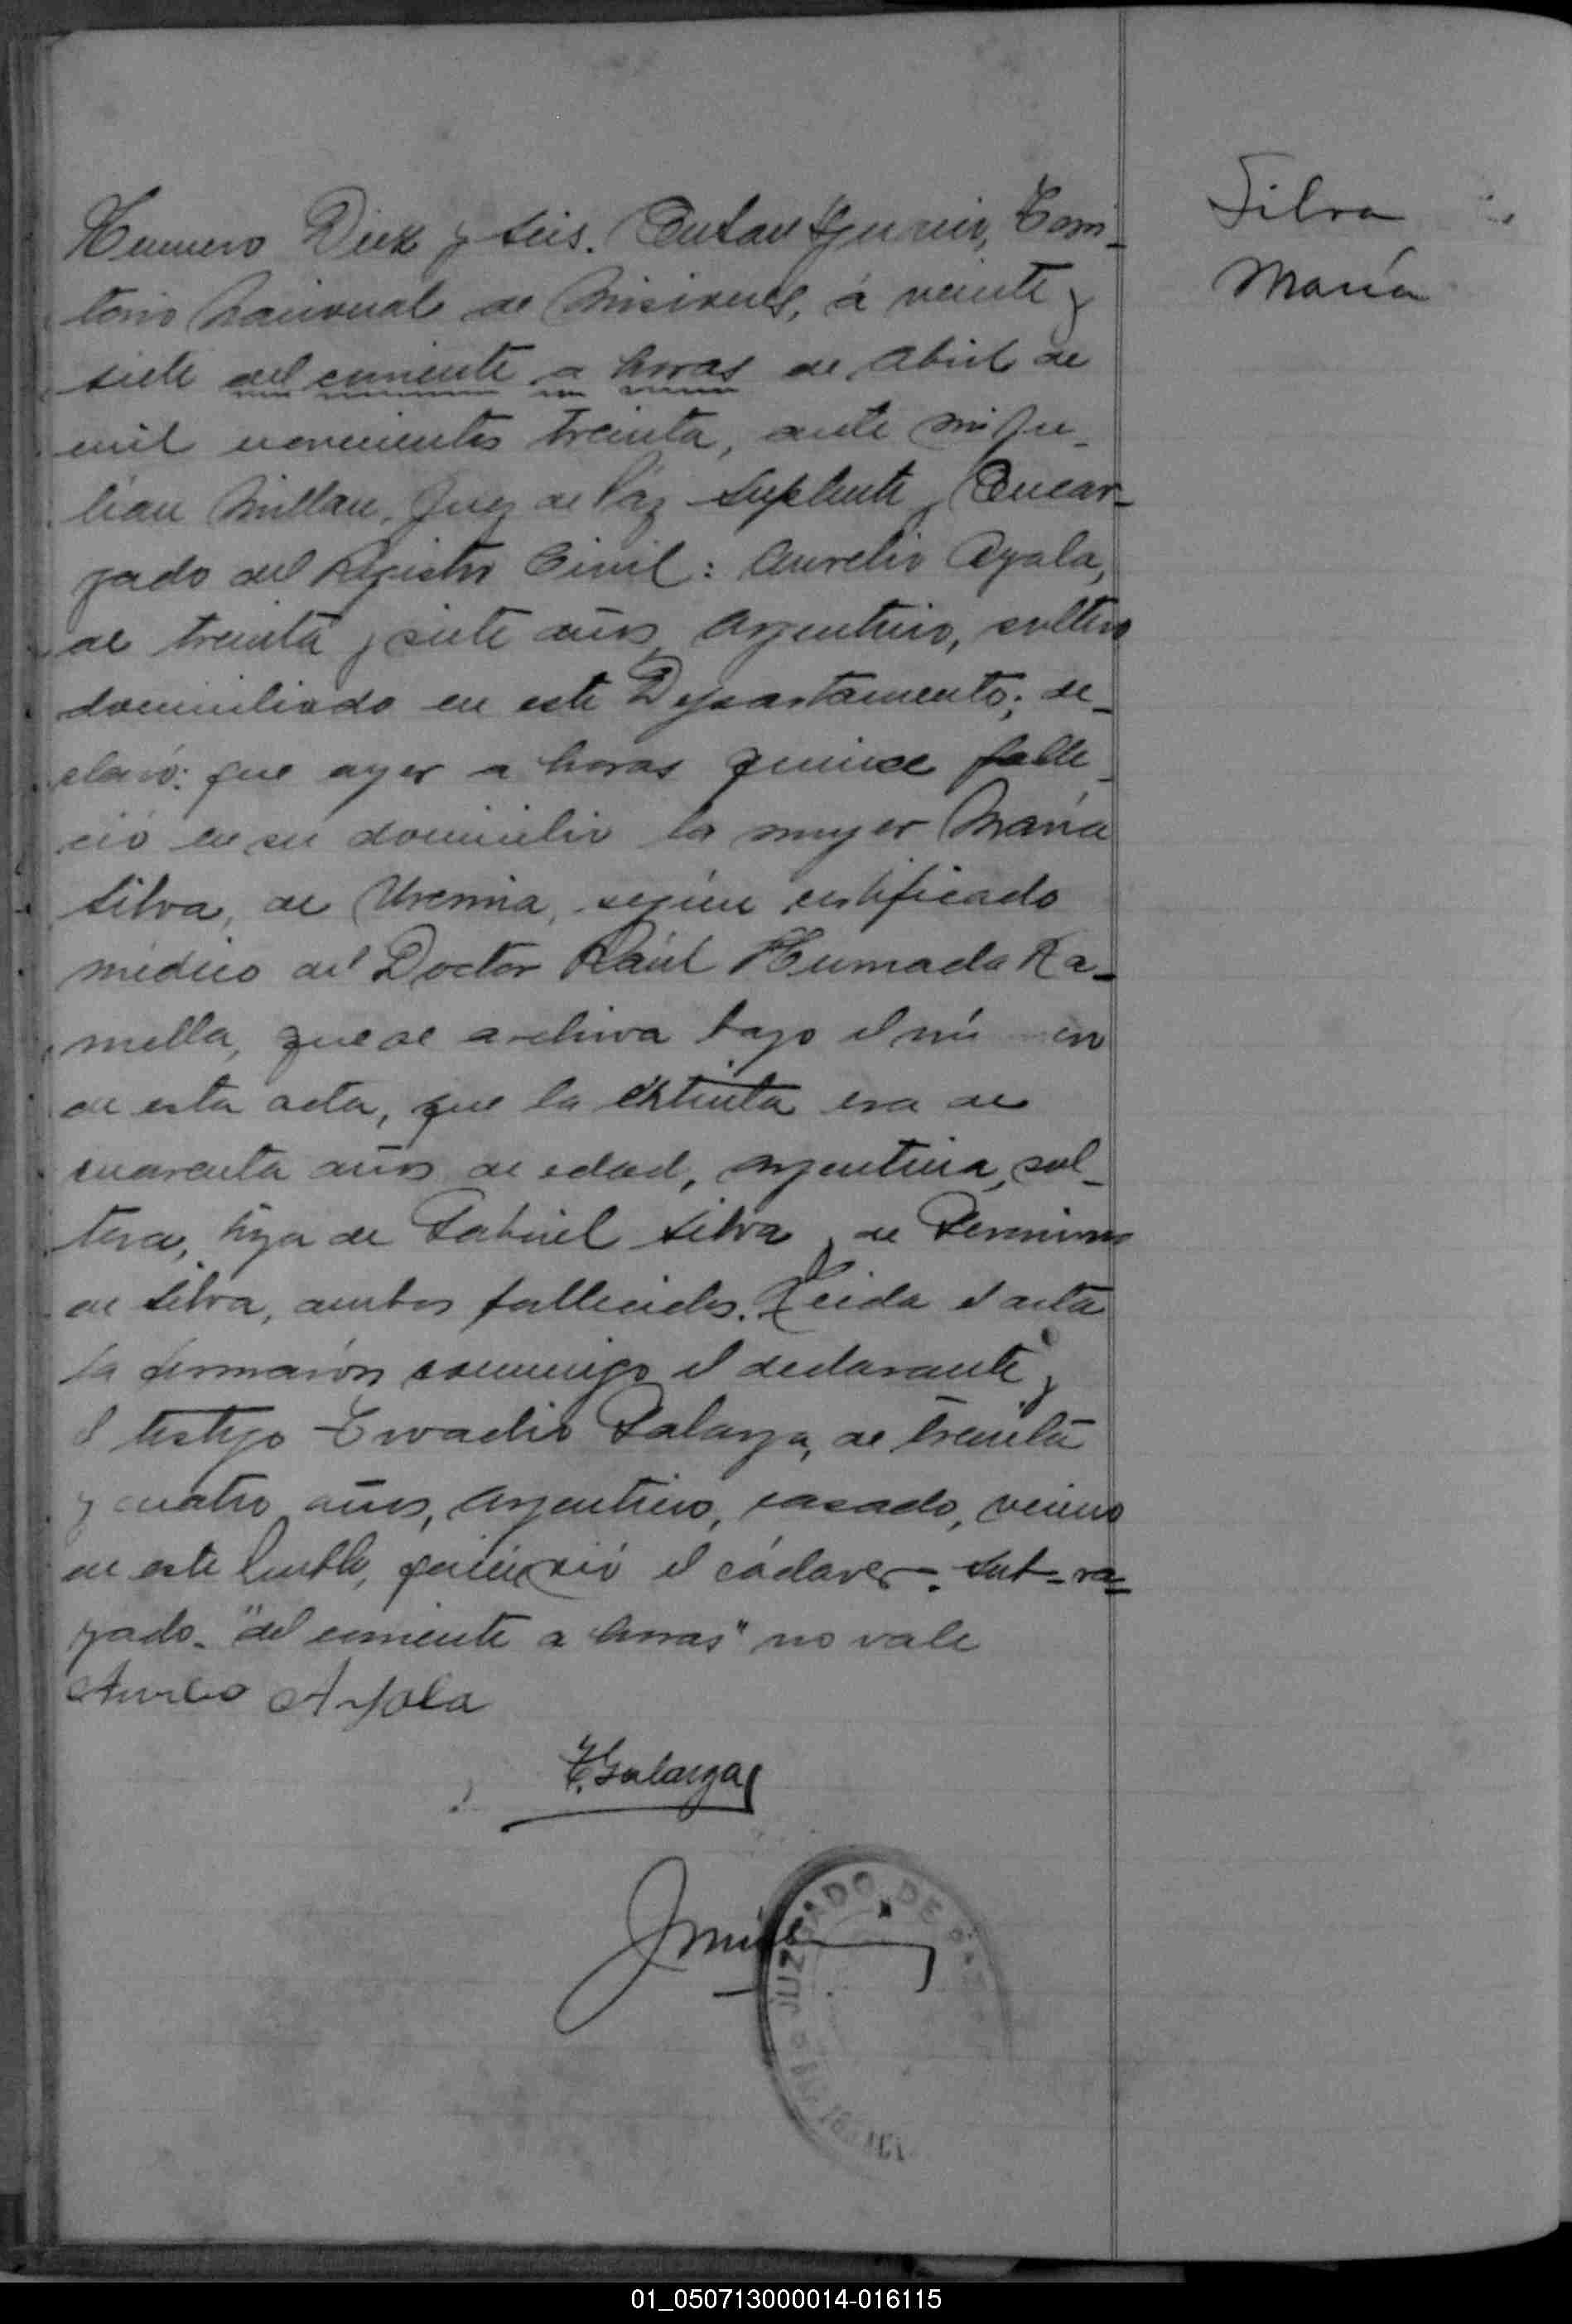 Silva
María
Número Diez y seis. En San Ignacio, Terri-
torio Nacional de Misiones, á veinte y
siete del corriente a horas de Abril de
mil novecientos treinta, ante mí Ju-
lian Millan, Juez de Páz Suplente y Encar-
gado del Registro Civil: Aurelio Ayala,
de treinta y siete años, Argentino, soltero
domiciliado en este Departamento; de-
claró: que ayer a horas quince falle-
ció en su domicilio la mujer María
Silva, de Uremia, según certificado
médico del Doctor Raúl Humada Ra-
mella, que se archiva bajo el nú
de esta acta, que la extinta era de
cuarenta años de edad, argentina, sol-
tera, hija de Gabriel Silva y de
de Silva, ambos fallecidos. Leida el acta
la firmaron conmigo el declarante y
el testigo Galarza, de treinta
y cuatro años, Argentino, casado, vecino
de este Pueblo, quien vió el cádaver-. Sub-ra=
yado- "del corriente a horas" no vale
Aurelio Ayala
E. Galarza
JUZGADO DE PAZ
01_050713000014-016115